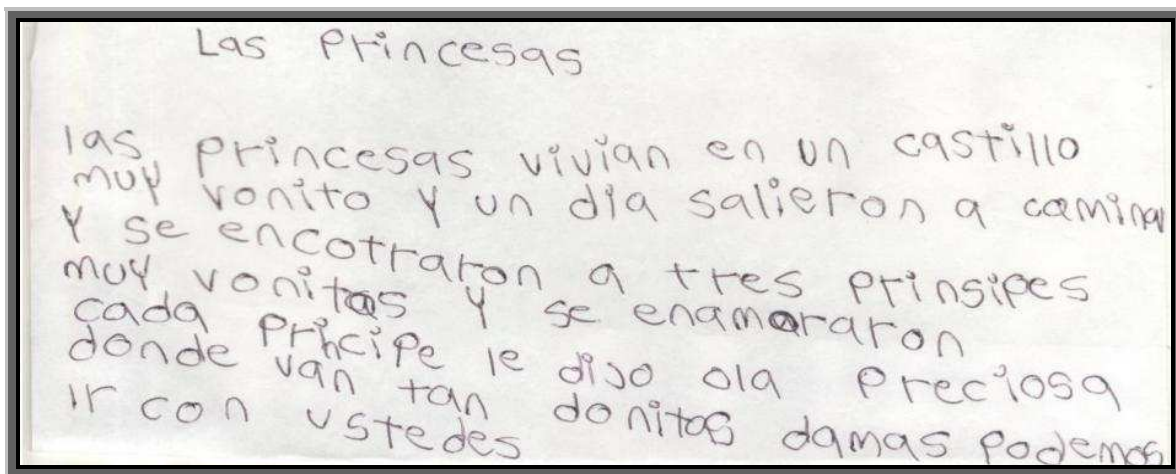 Las Princesas
las princesas vivian en un castillo
muy vonito y un dia salieron a caminar
y se encotraron a tres prinsipes
muy vonitos y se enamoraron
cada pricipe le dijo ola preciosa
donde van tan donitas damas podemos
ir con ustedes